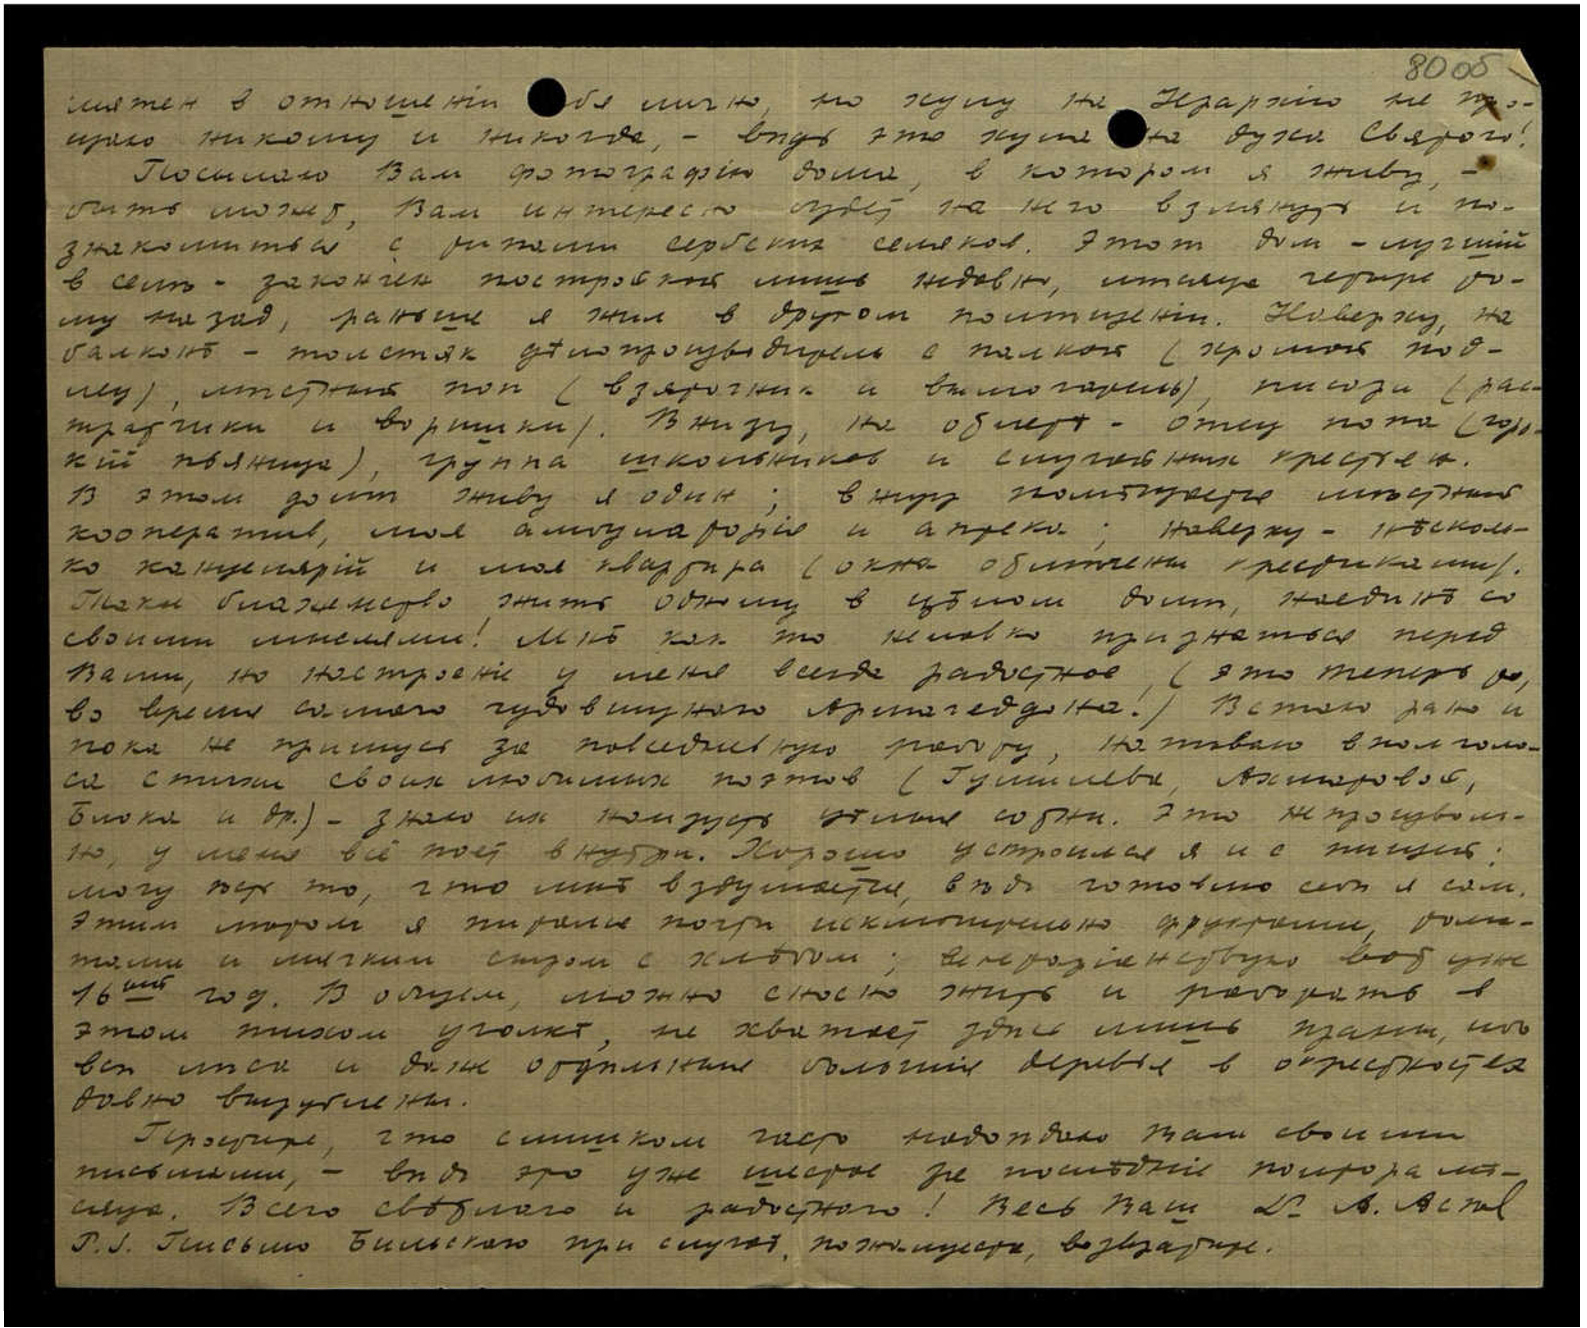 80об
мятен в отношенiи себя лично, но хулу на Iерархiю не про-
щаю никому и никогда, – вѣдь это хула на духа Святого!
Посылаю Вам фотографiю дома, в котором я живу, –
быть может, Вам интересно будет на него взглянуть и по-
знакомиться с типами сербских селяков. Этот дом – лучшiй
в селѣ – закончен постройкой лишь недавно, мѣсяца четыре то-
му назад, раньше я жил в другом помѣщенiи. Наверху, на
балконѣ – толстяк дѣлопроизводитель с палкой (хромой под-
лец), мѣстный поп (взяточник и вымогатель), писаря (рас-
тратчики и воришки). Внизу, на – отец попа (горь-
кiй пьяница), группа школьников и случайных крестьян.
В этом домѣ живу я один; внизу помѣщается мѣстный
кооператив, моя амбулаторiя и аптека; наверху – нѣсколь-
ко канцелярiй и моя квартира (окна отмѣчены крестиками).
Такое блаженство жить одному в цѣлом домѣ, наединѣ со
своими мыслями! Мнѣ как то неловко признаться перед
Вами, но настроенiе у меня всегда радостное, (это теперь то,
во время самого чудовищного Армагеддона!) Встаю рано и
пока не примусь за повседневную работу, напѣваю вполголо-
са стихи своих любимых поэтов (Гумилева, Ахматовой,
Блока и др.) – знаю их наизусть цѣлые сотни. Это непроизволь-
но, у меня всё поет внутри. Хорошо устроился я и с пищей:
могу ѣсть то, что мнѣ вздумается, вѣдь готовлю себѣ я сам.
Этим лѣтом я питался почти исключительно фруктами, тома-
тами и мягким сыром с хлѣбом; вегетарiанствую вот уже
16ый год. В общем, можно сносно жить и работать в
этом тихом уголкѣ, не хватает здѣсь лишь праны, ибо
всѣ лѣса и даже отдѣльные большiе деревья в окрестностях
давно вырублены.
Простите, что слишком часто надоѣдаю Вам своими
письмами, – вѣдь это уже шестое за послѣднiе полтора мѣ-
сяца. Всего свѣтлого и радостного! Весь Ваш Dr А. Асѣев
P.S. Письмо Бильского при случаѣ, пожалуйста, возвратите.